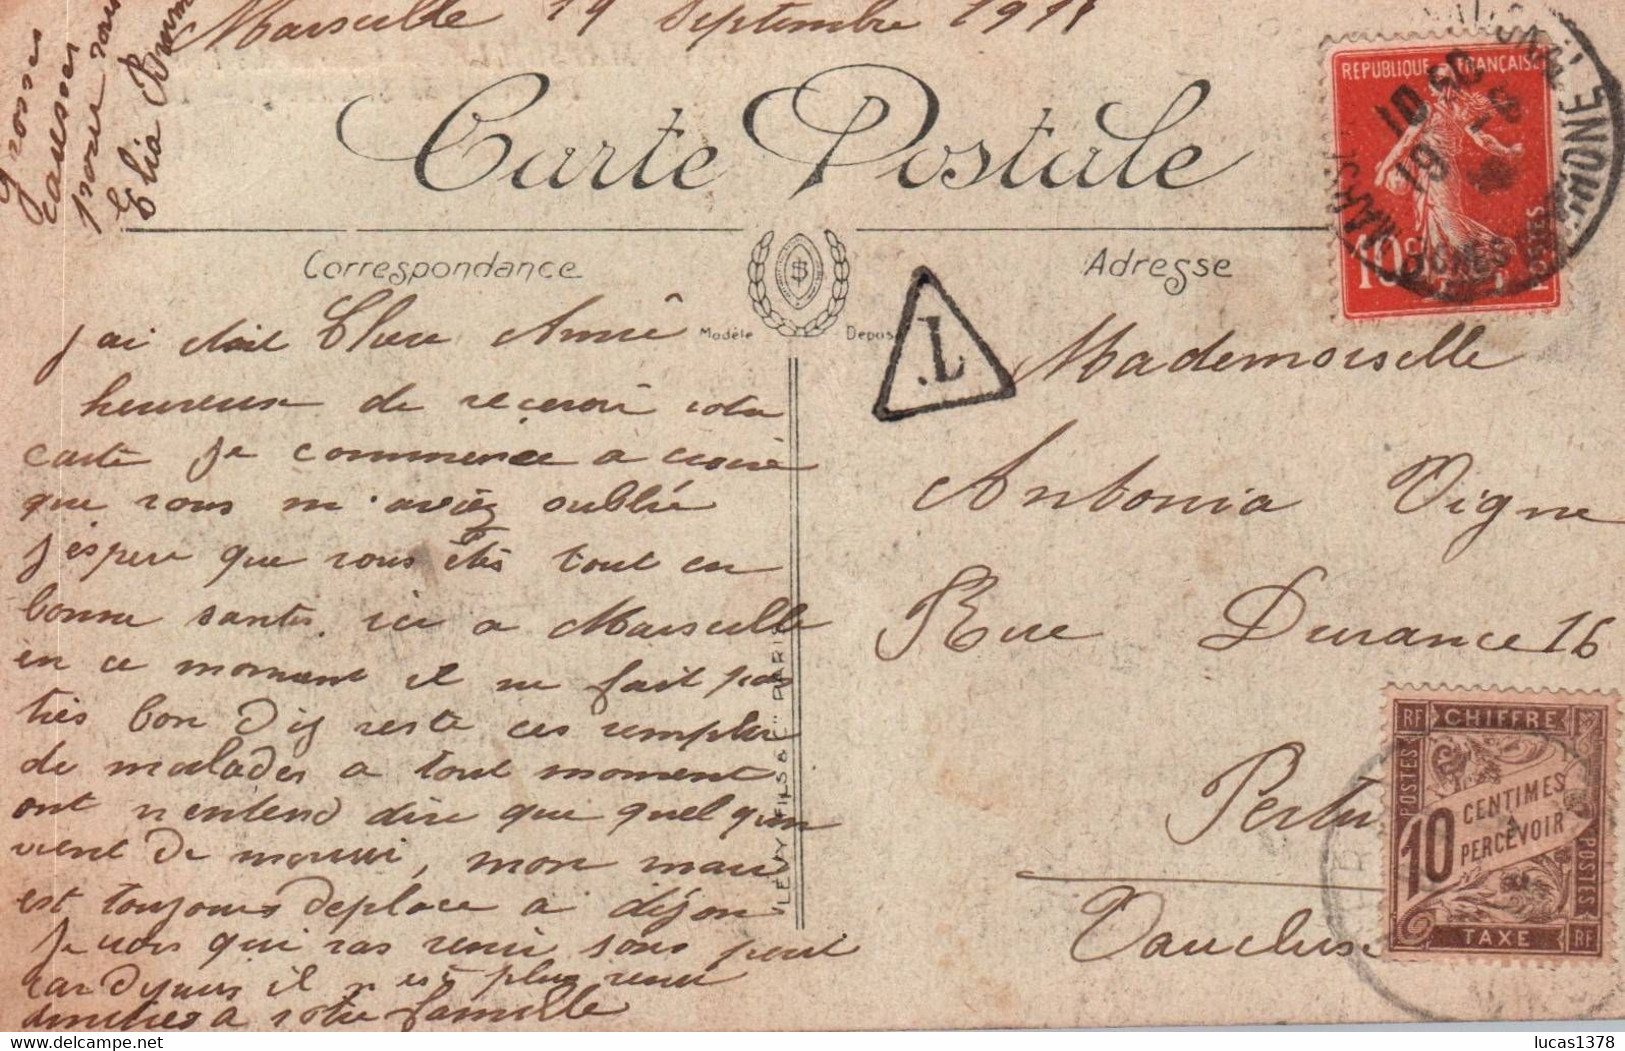 Marseille 19 Septembre 1918
Grosses
caresses
pour
Elia
Carte Postale
Correspondance
Adresse
Modèle Depos
REPUBLIQUE FRANÇAISE
10c
POSTES
19
T.
J'ai etait Chere Amie
heureuse de recevoir votre
carte je commence a croire
que vous m'aviez oublié
j'espere que vous êtes tout en
bonne santé. ici a Marseille
en ce moment il ne fait pas
très bon d'y reste ces remplie
de malades a tout moment
ont n'entend dire que quelqun
vient de mourir, mon mari
est toujours deplace a dijon
Je crois qui vas venir sous peut
car depuis il n'est plus venu
amitiés a votre famille
LEVY FILS & Cie PARIS
Mademoiselle
Antonia Vigne
Rue Durance 16
Pertu
Vaucluse
RF CHIFFRE
POSTES
10 CENTIMES
PERCEVOIR
POSTES
TAXE RF
lucas1378